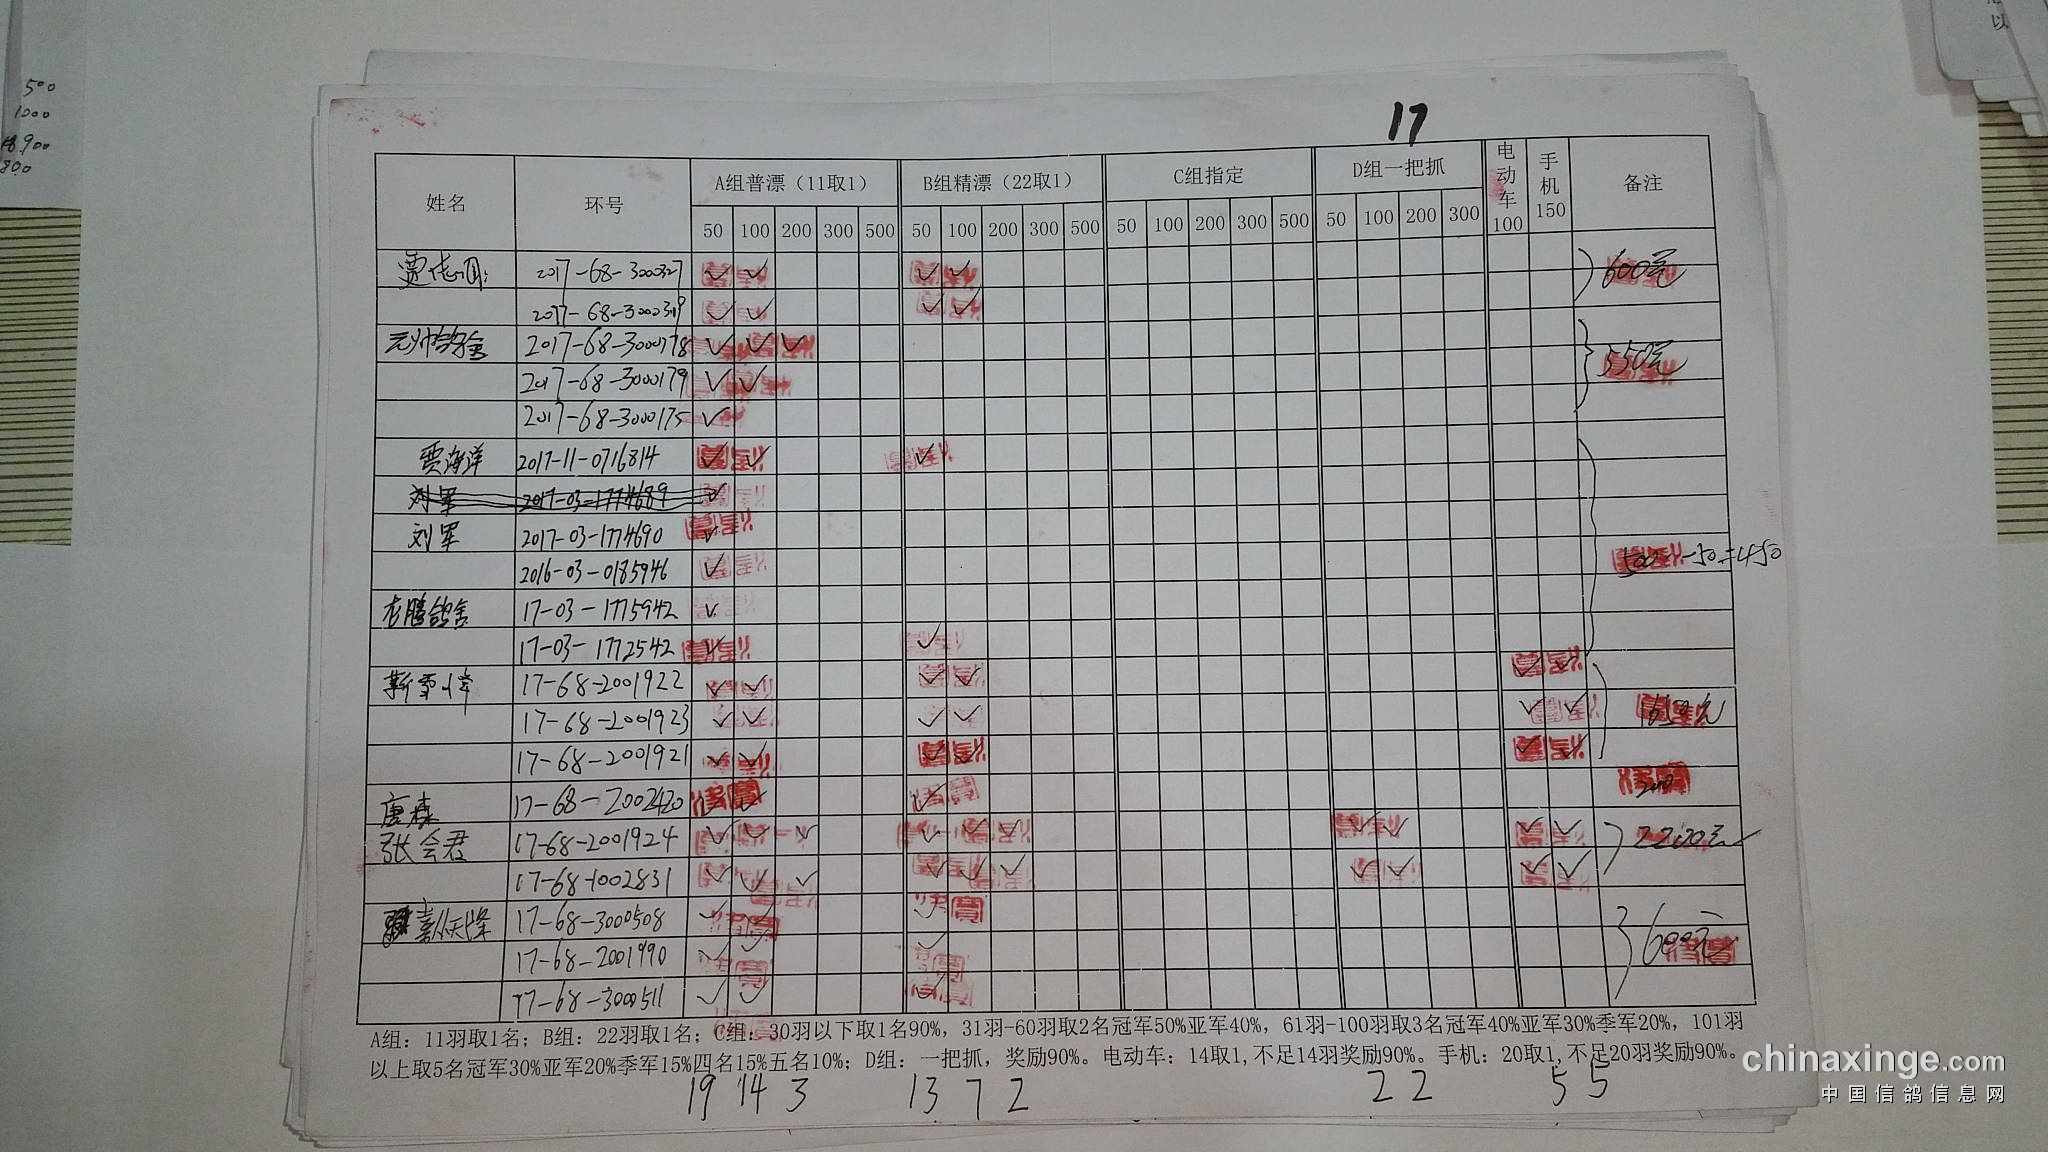 500
1000
900
以
17
姓名 环号 A组普漂（11取1） B组精漂（22取1） C组指定 D组一把抓 电动车100 手机150 备注
50 100 200 300 500 50 100 200 300 500 50 100 200 300 500 50 100 200 300
2017-68-3000327 ✓ ✓ ✓ ✓ 600元
2017-68-3000319 ✓ ✓ ✓ ✓
元帅鸽舍 2017-68-3000178 ✓ ✓ ✓ 550元
2017-68-3000179 ✓ ✓
2017-68-3000175 ✓
贾海洋 2017-11-0716814 ✓ ✓ ✓
刘军 2017-03-1774689 ✓
刘军 2017-03-1774690 ✓ 500-50=450
2016-03-0185946 ✓
龙腾鸽舍 17-03-1775942 ✓
17-03-1772542 ✓ ✓
17-68-2001922 ✓ ✓ ✓ ✓ ✓ ✓
17-68-2001923 ✓ ✓ ✓ ✓ ✓ ✓ 1650元
17-68-2001921 ✓ ✓ ✓ ✓ ✓ ✓
唐森 17-68-2002420 ✓ ✓ ✓ 200
张会君 17-68-2001924 ✓ ✓ ✓ ✓ ✓ ✓ ✓ ✓ ✓ ✓ 2200元
17-68-1002831 ✓ ✓ ✓ ✓ ✓ ✓ ✓ ✓ ✓ ✓
17-68-3000508 ✓ ✓ ✓ 600元
17-68-2001990 ✓ ✓ ✓
17-68-3000511 ✓ ✓ ✓
A组：11羽取1名；B组：22羽取1名；C组：30羽以下取1名90%，31羽-60羽取2名冠军50%亚军40%，61羽-100羽取3名冠军40%亚军30%季军20%，101羽
以上取5名冠军30%亚军20%季军15%四名15%五名10%；D组：一把抓，奖励90%。电动车：14取1,不足14羽奖励90%。手机：20取1,不足20羽奖励90%。
19 14 3 13 7 2 2 2 5 5
chinaxinge.com
中国信鸽信息网